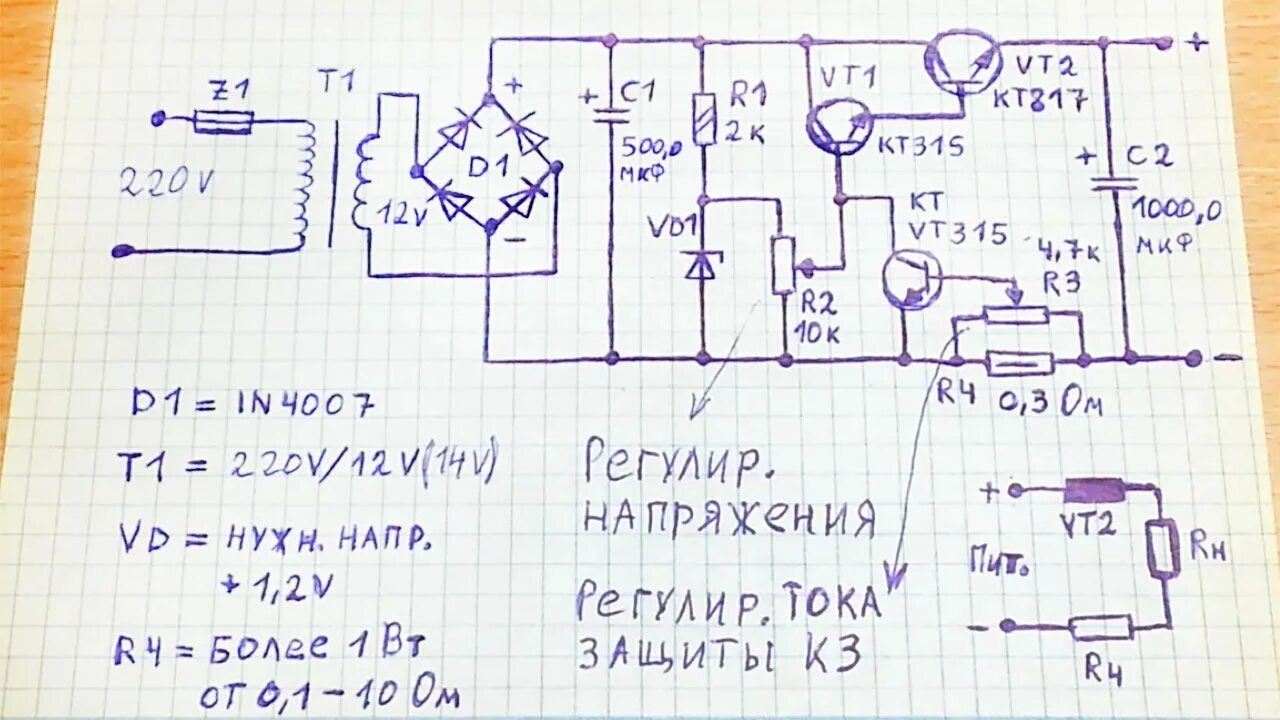 Z1
T1
220V
12V
D1
+
−
+ C1
500,0
мкФ
R1
2к
VD1
R2
10к
VT1
КТ315
VT2
КТ817
КТ
VT315
4,7к
R3
R4
0,3 Ом
+ C2
1000,0
мкФ
+
−
D1 = IN4007
T1 = 220V/12V(14V)
VD = НУЖН. НАПР.
+ 1,2V
R4 = БОЛЕЕ 1 Вт
ОТ 0,1 – 10 Ом
РЕГУЛИР.
НАПРЯЖЕНИЯ
РЕГУЛИР. ТОКА
ЗАЩИТЫ КЗ
+
VT2
Пит.
Rн
−
R4